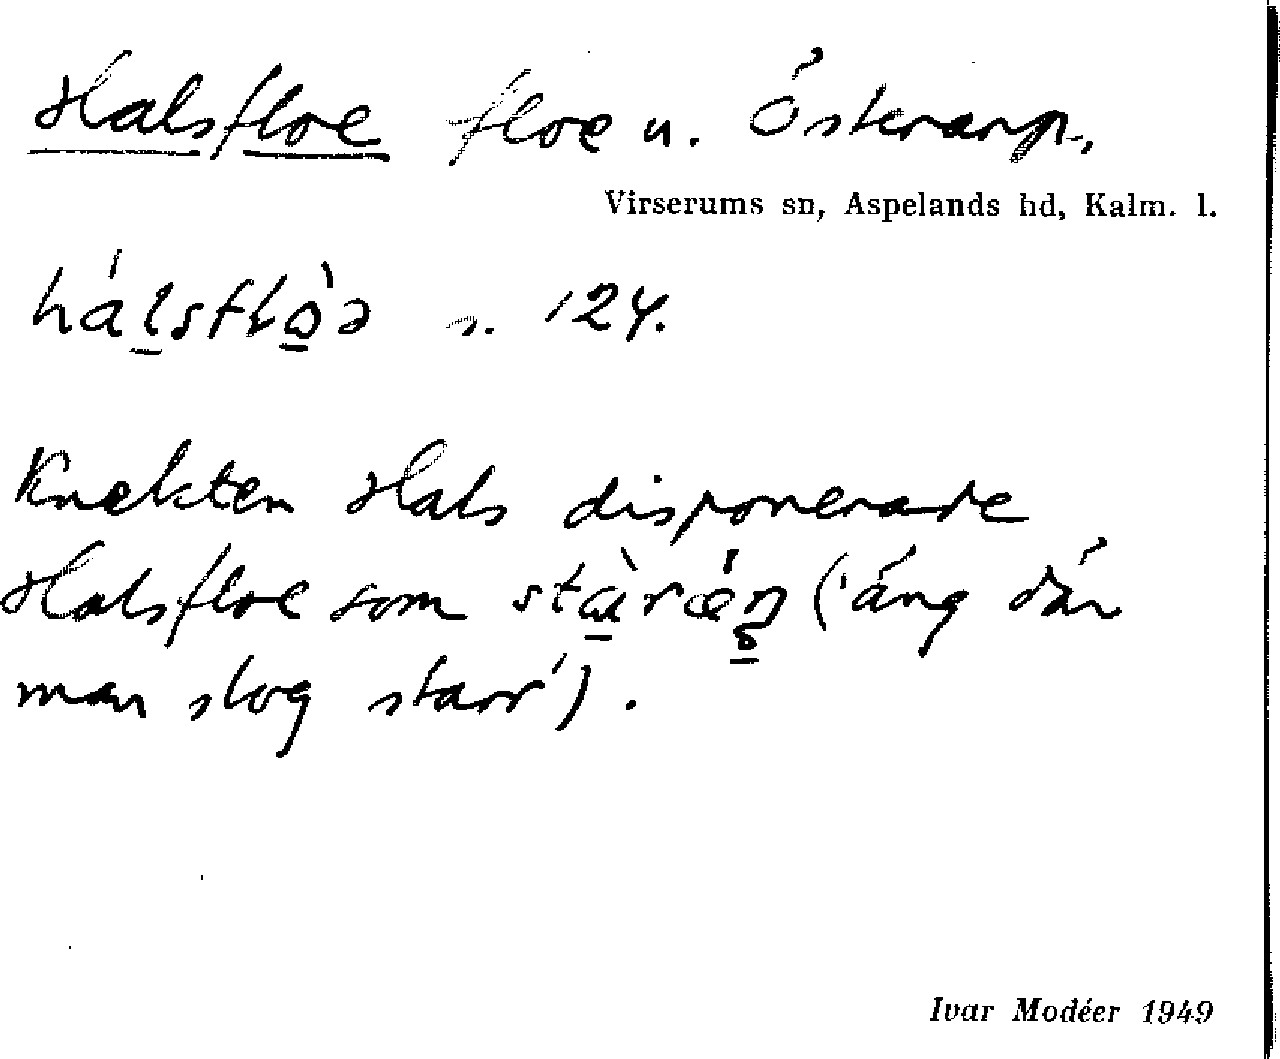 Halsfloe floe u. Österarp.
Virserums sn, Aspelands hd, Kalm. l.
hálsflòə n. 124.
Knekten Hals disponerade
Halsfloe som stàrǽŋ ('äng där
man slog starr').
Ivar Modéer 1949